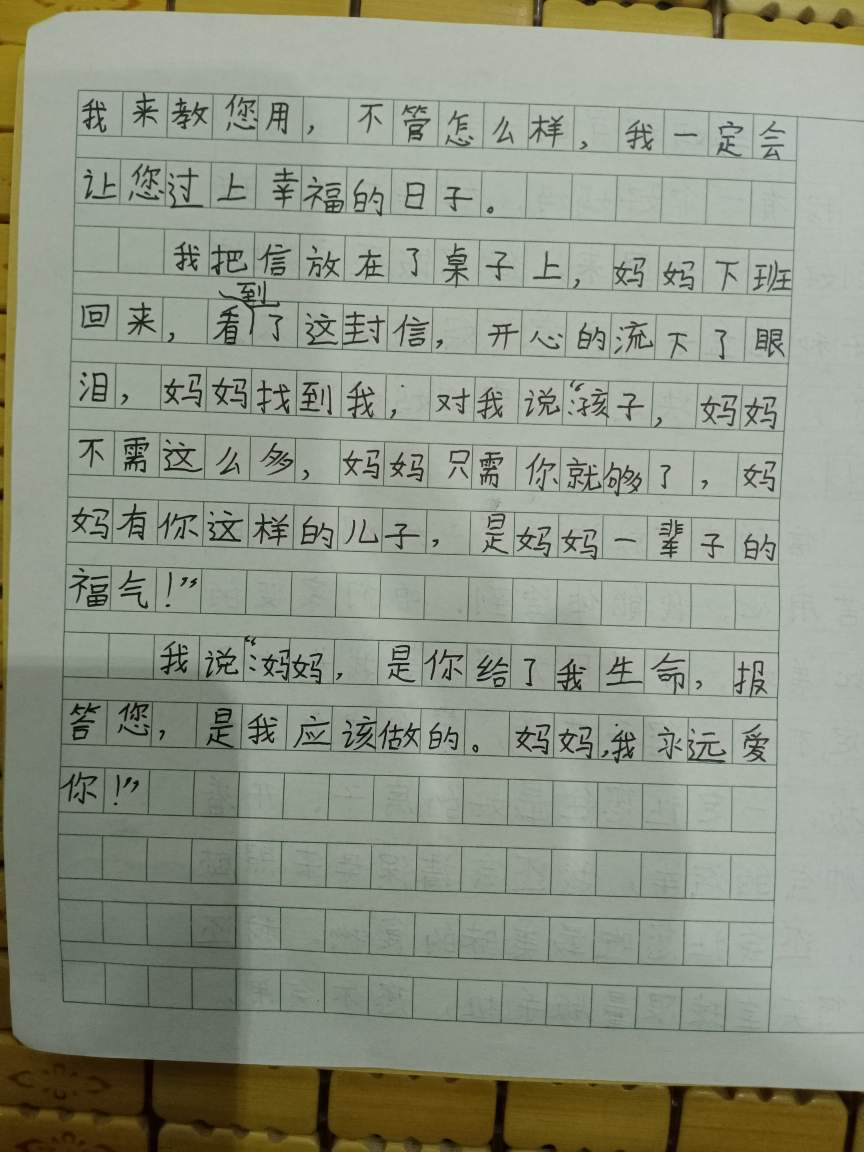 我来教您用，不管怎么样，我一定会
让您过上幸福的日子。
我把信放在了桌子上，妈妈下班
回来，看到了这封信，开心的流下了眼
泪，妈妈找到我，对我说：“孩子，妈妈
不需这么多，妈妈只需你就够了，妈
妈有你这样的儿子，是妈妈一辈子的
福气！”
我说：“妈妈，是你给了我生命，报
答您，是我应该做的。妈妈，我永远爱
你！”